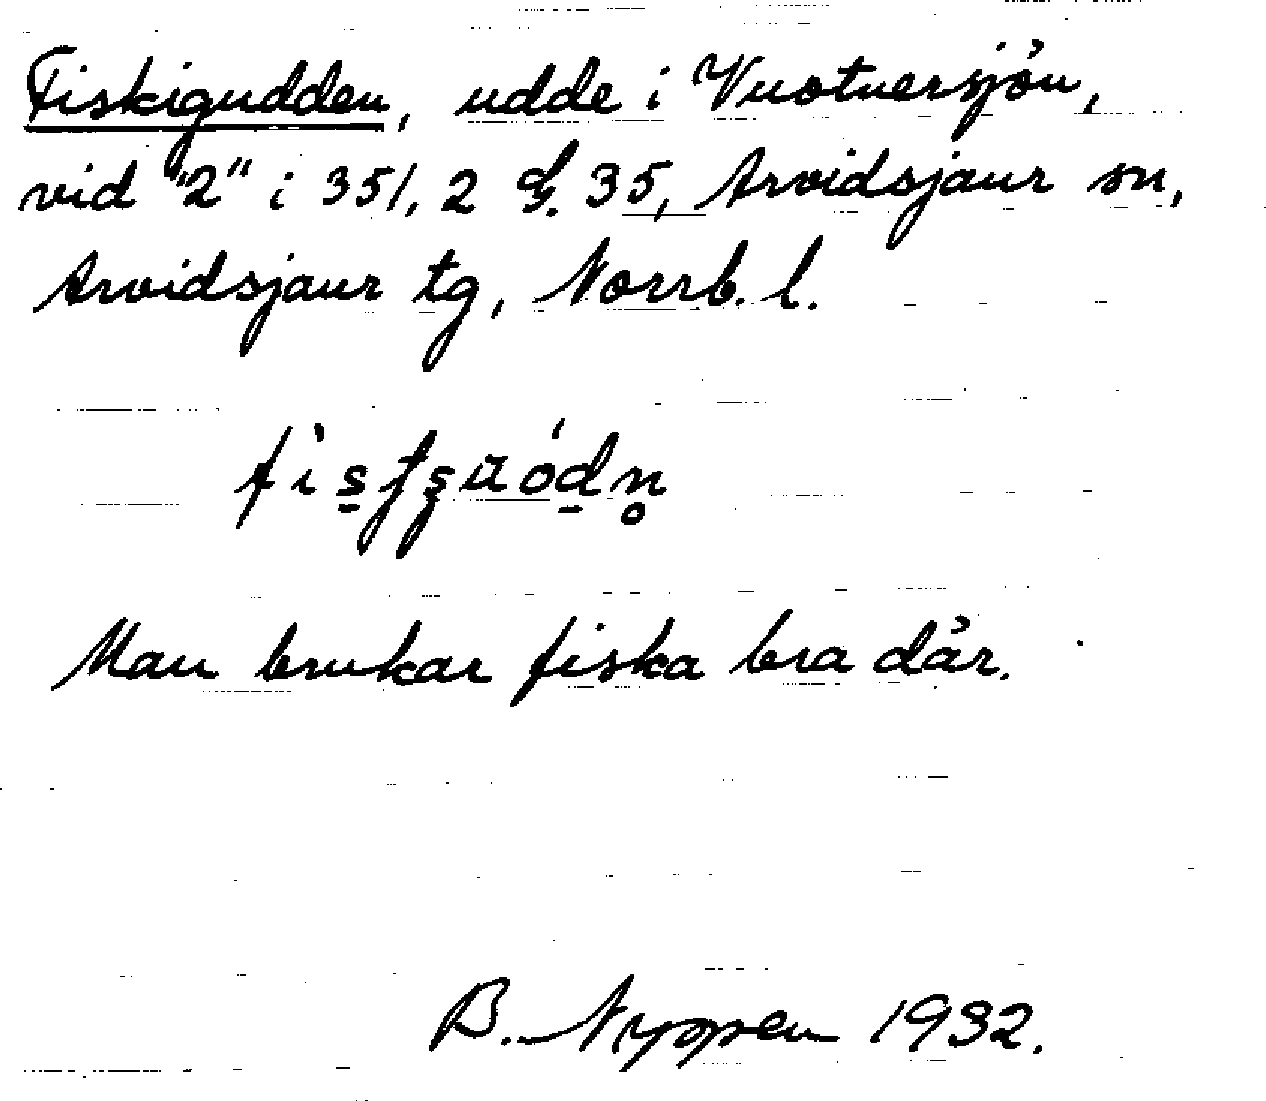 Fiskigudden, udde i Vuotnersjön,
vid "2" i 351, 2 G. 35, Arvidsjaur sn,
Arvidsjaur tg, Norrb. l.
Man brukar fiska bra där.
B. Nyppen 1932.